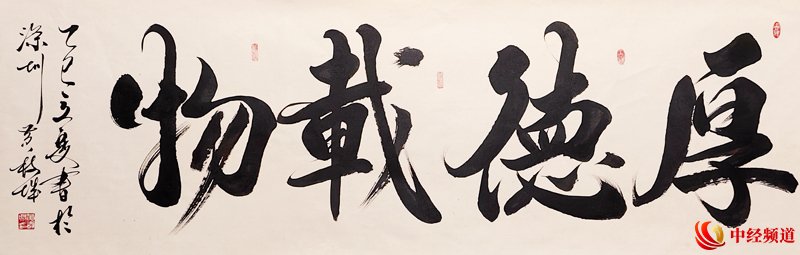 厚德載物
乙巳立夏書於
深圳 黄
中经频道